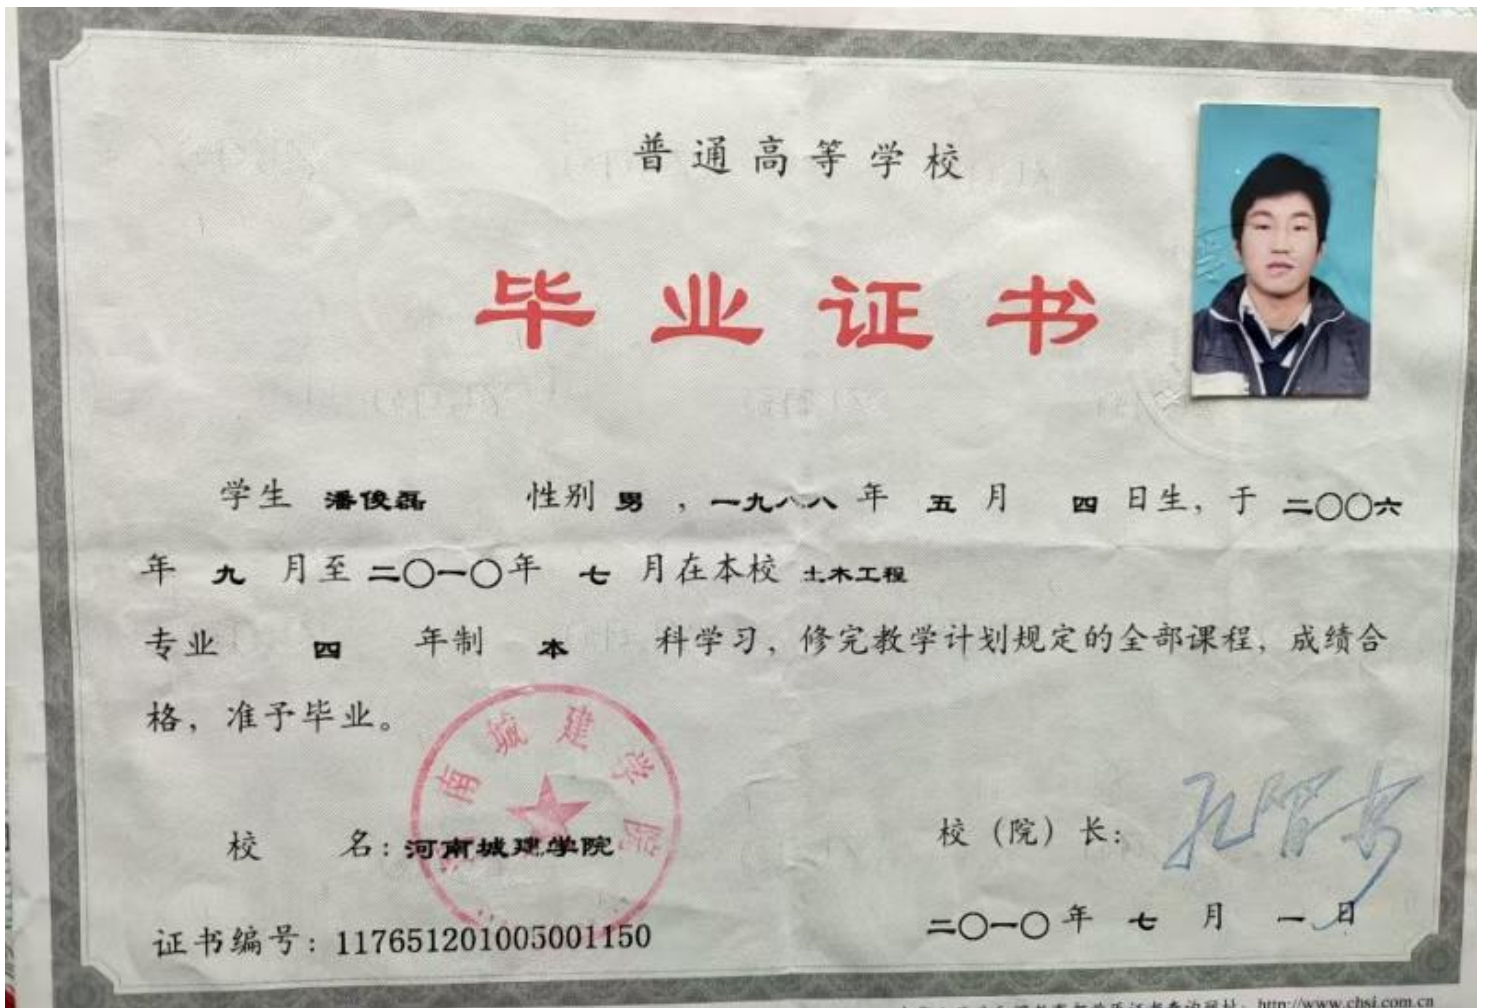 普通高等学校
毕业证书
学生 潘俊磊 性别 男 ，一九八八 年 五 月 四 日生，于 二〇〇六
年 九 月至 二〇一〇 年 七 月在本校 土木工程
专业 四 年制 本 科学习，修完教学计划规定的全部课程，成绩合
格，准予毕业。
河南城建学院
校 名：河南城建学院
校（院）长：
证书编号：117651201005001150
二〇一〇 年 七 月 一 日
http://www.chsi.com.cn